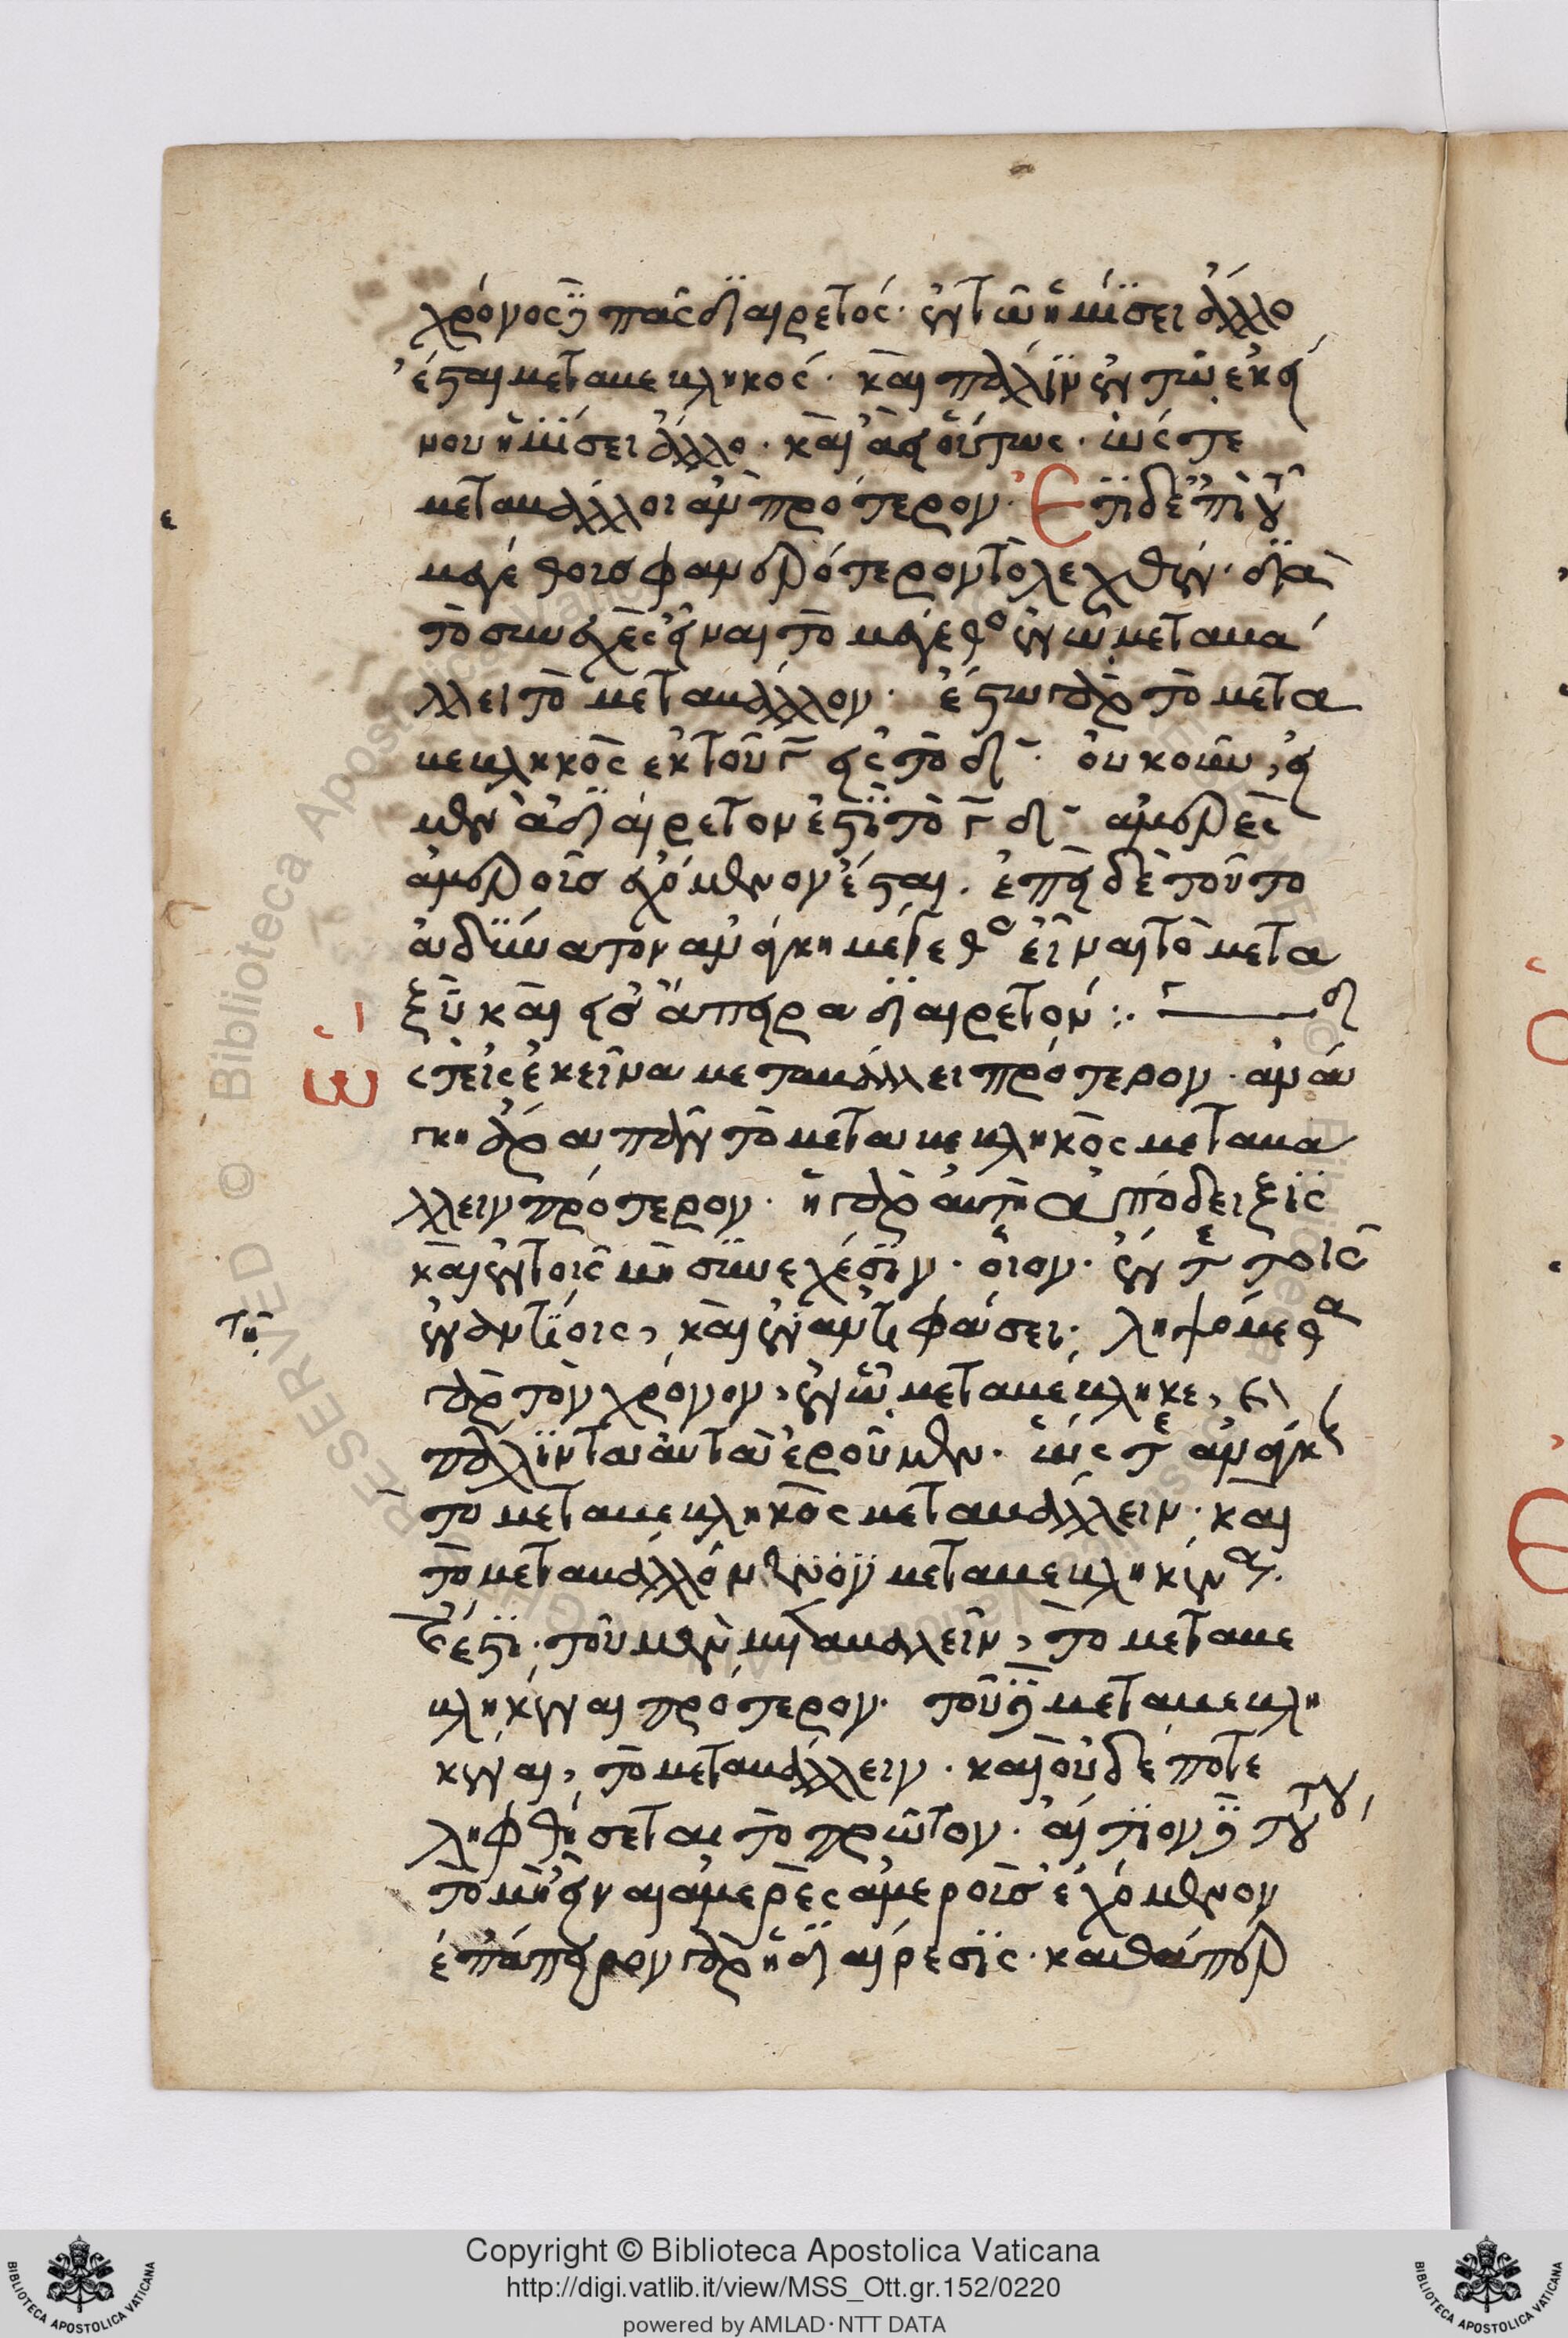 χρόνος δὲ πᾶς διαιρετός· ἐν τῶ ἡμίσει ἄλλο
ἔσται μεταβεβληκός· καὶ πάλιν ἐν τῶ ἐκεί
νου ἡμίσει ἄλλο· καὶ ἀεὶ οὕτως· ὥστε
μεταβάλλοι ἂν πρότερον· Ἔτι δ' ἐπὶ τοῦ
μεγέθους φανερώτερον τὸ λεχθέν· διὰ
τὸ συνεχὲς εἶναι τὸ μέγεθος ἐν ὧ μεταβά
λλει τὸ μεταβάλλον· ἔστω γὰρ τὸ μετα
βεβληκὸς ἐκ τοῦ γ εἰς τὸ δ· οὐκοῦν, εἰ
μὲν ἀδιαίρετον ἐστὶ τὸ γ δ ἀμερὲς
ἀμεροῦς ἐχόμενον ἔσται· ἐπεὶ δὲ τοῦτο
ἀδύνατον ἀνάγκη μέγεθος εἶναι τὸ μετα
ξὺ καὶ εἰς ἄπειρα διαιρετόν: γ δ
ὥστ' εἰς ἐκεῖνα μεταβάλλει πρότερον· ἀνάγ
κη ἄρα πᾶν τὸ μεταβεβληκὸς μεταβά
λλειν πρότερον· ἡ γὰρ αὐτὴ ἀπόδειξις
καὶ ἐν τοῖς μὴ συνεχέσιν· οἷον· ἔν τε τοῖς
ἐναντίοις, καὶ ἐν ἀντιφάσει· ληψόμεθα
γὰρ τὸν χρόνον, ἐν ὧ μεταβέβληκε, καὶ
πάλιν ταὐτὰ ἐροῦμεν· ὥστε ἀνάγκη
τὸ μεταβεβληκὸς μεταβάλλειν· καὶ
τὸ μεταβάλλον μεταβεβληκέναι
ἔστι· τοῦ μὲν μεταβαλεῖν, τὸ μεταβε
βληκέναι πρότερον· τοῦ δὲ μεταβεβλη
κέναι, τὸ μεταβάλλειν· καὶ οὐδέποτε
ληφθήσεται τὸ πρῶτον· αἴτιον δὲ τούτου,
τὸ μὴ εἶναι ἀμερὲς ἀμεροῦς ἐχόμενον
ἐπάπειρον γὰρ ἡ διαίρεσις· καθάπερ